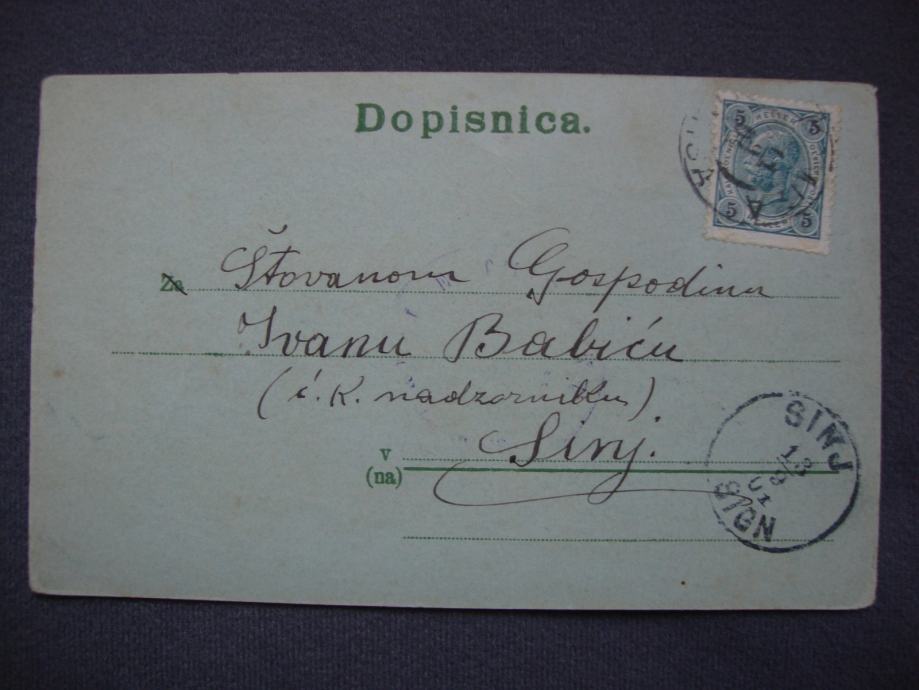 Dopisnica.
5 HELLER 5
5 5
Za Štovanom Gospodinu
Ivanu Babiću
(i. K. nadzorniku)
v Sinj.
(na)
SINJ
SIGN